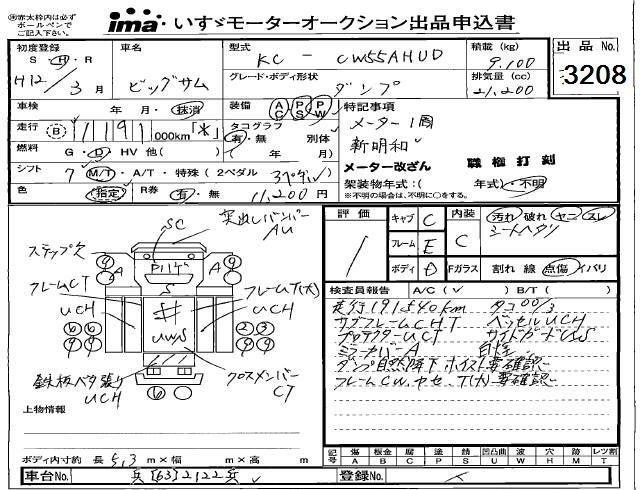 ※赤太枠内は必ず
ボールペンで
ご記入下さい。
ima いすゞモーターオークション出品申込書
初度登録
S・H・R
H12/3月
車名
ビッグサム
型式
KC - CW55AHUD
グレード・ボディ形状
ダンプ
積載 (kg)
9,100
排気量 (cc)
21,200
出品 No.
3208
車検 年・月・抹消
走行 B 1191 000km「*」
燃料 G・D・HV 他( )
シフト 7 M/T・A/T・特殊(2ペダル 3ペダル)
色 指定
R券 有・無 11,200円
装備 AC PS PW
タコグラフ
有・無 別体
( 年 月)
特記事項
メーター1周
新明和
メーター改ざん 職権打刻
架装物年式:( 年式)・不明
※不明の場合は、不明に○をする。
突出しバンバー
AU
SC
ステップ欠
A
A
フレームCT
フレームT(大)
UCH
UCH
UWS
鉄板ベタ張り
UCH
クロスメンバー
CT
上物情報
ボディ内寸約 長 5.3 m×幅 m×高 m
評価
キャブ C
フレーム E
ボディ D
内装 C
汚れ 破れ ヤニ スレ
シートヘタリ
Fガラス 割れ 線 点傷 イバリ
検査員報告 A/C(✓) B/T( )
走行1191540km タコ00/3
サブフレームUCHT ベッセルUCH
プロテクターUCT サイドガードUS
ミラーカバーA
ダンプ自然降下 ホイスト要確認
フレームCW、ヤセ、T(大)要確認
記号 傷A 板金B 腐C 塗P 錆S 凹凸曲U 波W 穴H 跡M レツ割T
車台No. 兵[63]2122兵
登録No.